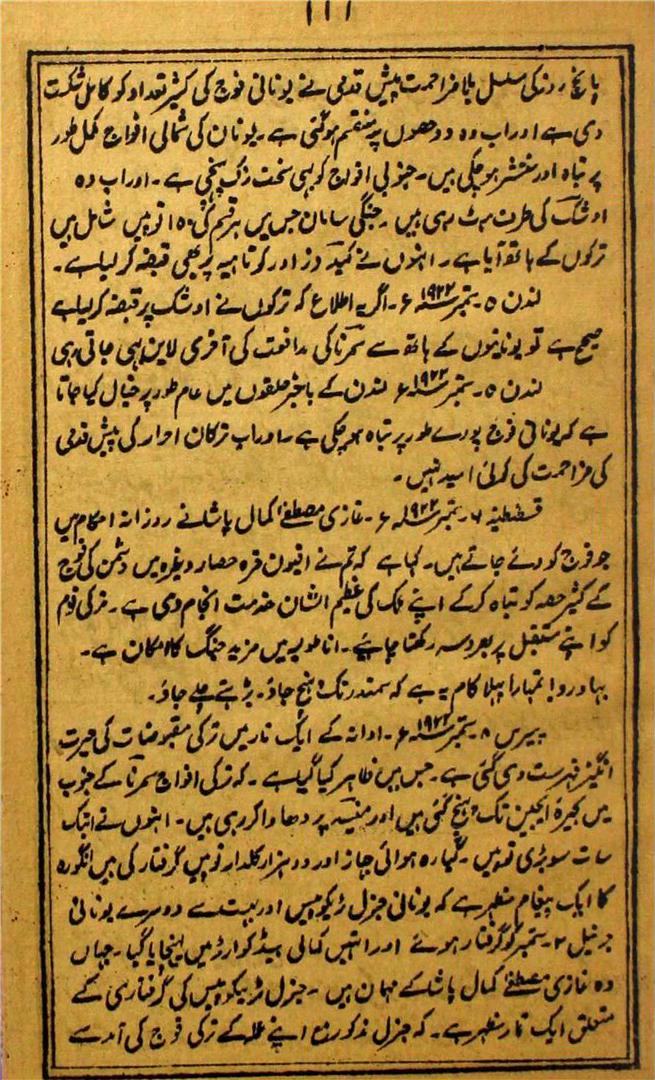 ۱۱۱
پانچ روز کی مسلسل بلا مزاحمت پیش قدمی نے یونانی فوج کی کثیر تعداد کو کامل شکست
دی ہے اور اب وہ دو حصوں پر منقسم ہوگئی ہے۔ یونان کی شمالی افواج مکمل طور
پر تباہ اور منتشر ہو چکی ہیں۔ جنوبی افواج کو بھی سخت زک پہنچی ہے۔ اور اب وہ
اوشک کی طرف ہٹ رہی ہیں۔ جنگی سامان جس میں ہر قسم کی ۱۵۰ توپیں شامل ہیں
ترکوں کے ہاتھ آیا ہے۔ انہوں نے کیدز اور کوتاہیہ پر بھی قبضہ کر لیا ہے۔
لندن ۵۔ ستمبر ۱۹۲۲ء۔ اگر یہ اطلاع کہ ترکوں نے اوشک پر قبضہ کر لیا ہے
صحیح ہے تو یونانیوں کے ہاتھ سے سمرنا کی مدافعت کی آخری لاین بھی جاتی رہی
لندن ۵۔ ستمبر ۱۹۲۲ء لندن کے باخبر حلقوں میں عام طور پر خیال کیا جاتا
ہے کہ یونانی فوج پورے طور پر تباہ ہو چکی ہے۔ اور اب ترکان احرار کی پیش قدمی
کی مزاحمت کی کوئی امید نہیں۔
قسطنطنیہ ۶۔ ستمبر ۱۹۲۲ء۔ غازی مصطفےٰ کمال پاشا نے روزانہ احکام میں
جو فوج کو دئے جاتے ہیں۔ کہا ہے کہ تم نے افیون قرہ حصار وغیرہ میں دشمن کی فوج
کے کثیر حصہ کو تباہ کرکے اپنے ملک کی عظیم الشان خدمت انجام دی ہے۔ ترکی قوم
کو اپنے مستقبل پر بھروسہ رکھنا چاہئے۔ اناطولیہ میں مزید جنگ کا امکان ہے۔
بہادرو! تمہارا پہلا کام یہ ہے کہ سمندر تک پہنچ جاؤ۔ بڑہتے چلے جاؤ۔
پیرس ۸۔ ستمبر ۱۹۲۲ء۔ ادانہ کے ایک تار میں ترکی مقبوضات کی حیرت
انگیز فہرست دی گئی ہے۔ جس میں ظاہر کیا گیا ہے۔ کہ ترکی افواج سمرنا کے جنوب
میں بحیرۂ ایجین تک پہنچ گئی ہیں اور پر دھاوا کر رہی ہیں۔ انہوں نے ابتک
سات سو بڑی توپیں۔ گیارہ ہوائی جہاز اور دو ہزار کلدار توپیں گرفتار کی ہیں انگورہ
کا ایک پیغام مظہر ہے کہ یونانی جنرل ٹریکوپیس اور بہت سے دوسرے یونانی
جرنیل ۲۔ ستمبر کو گرفتار ہوئے اور انہیں کمالی ہیڈکوارٹر میں پہنچایا گیا۔ جہاں
وہ غازی مصطفےٰ کمال پاشا کے مہمان ہیں۔ جنرل ٹریکوپیس کی گرفتاری کے
متعلق ایک تار مظہر ہے۔ کہ جنرل مذکور مع اپنے عملہ کے ترکی فوج کی آمد سے